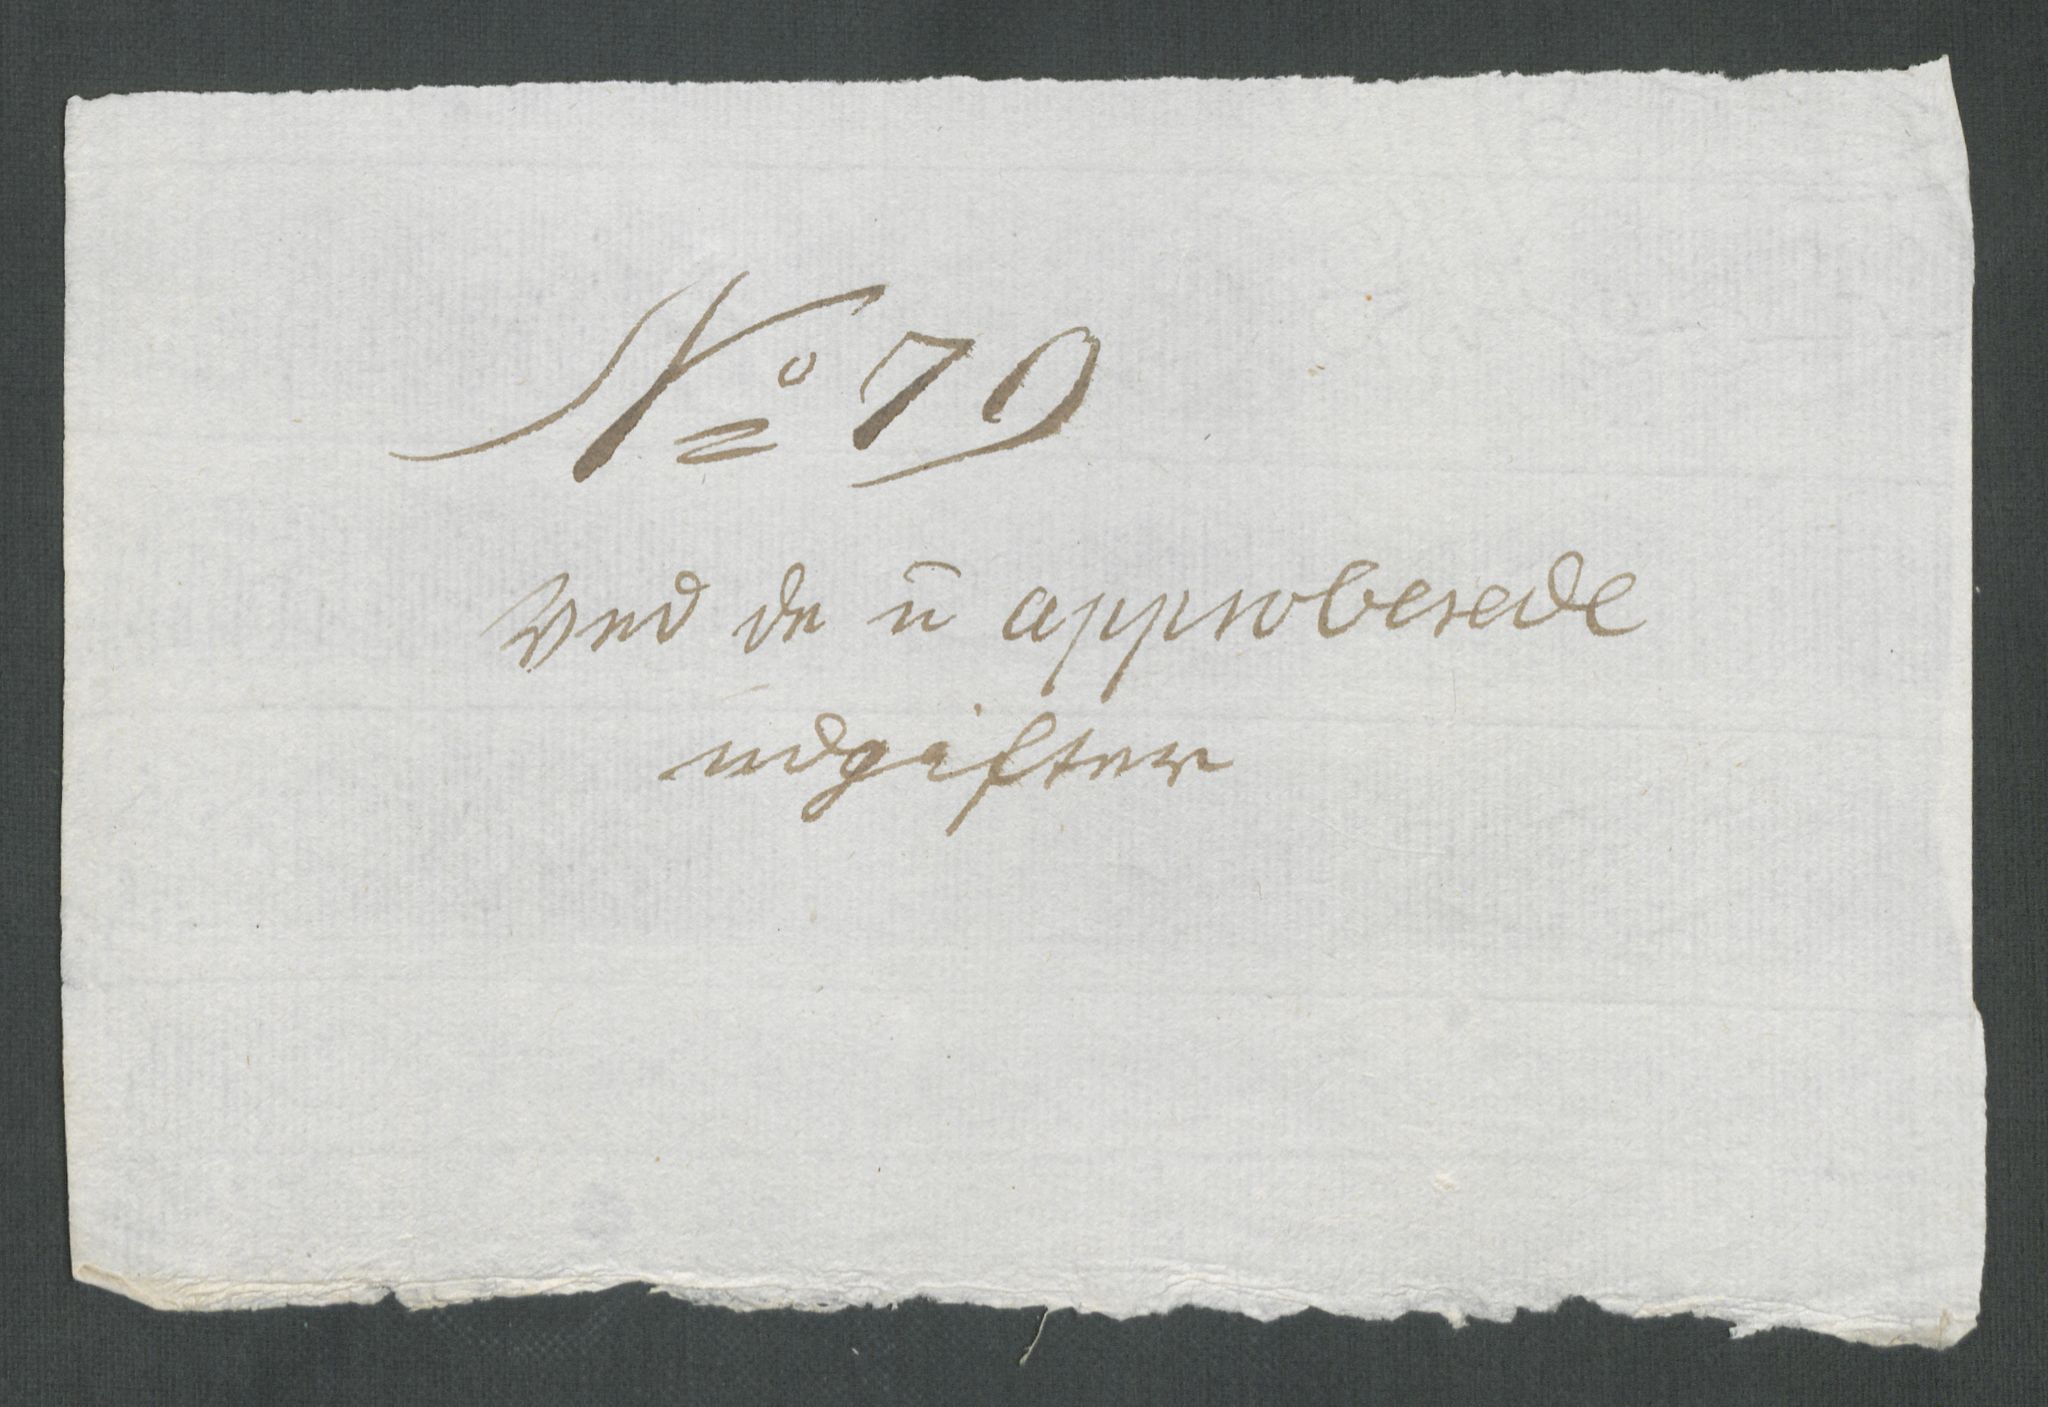 No 79
Ved de ū approberede
udgifter